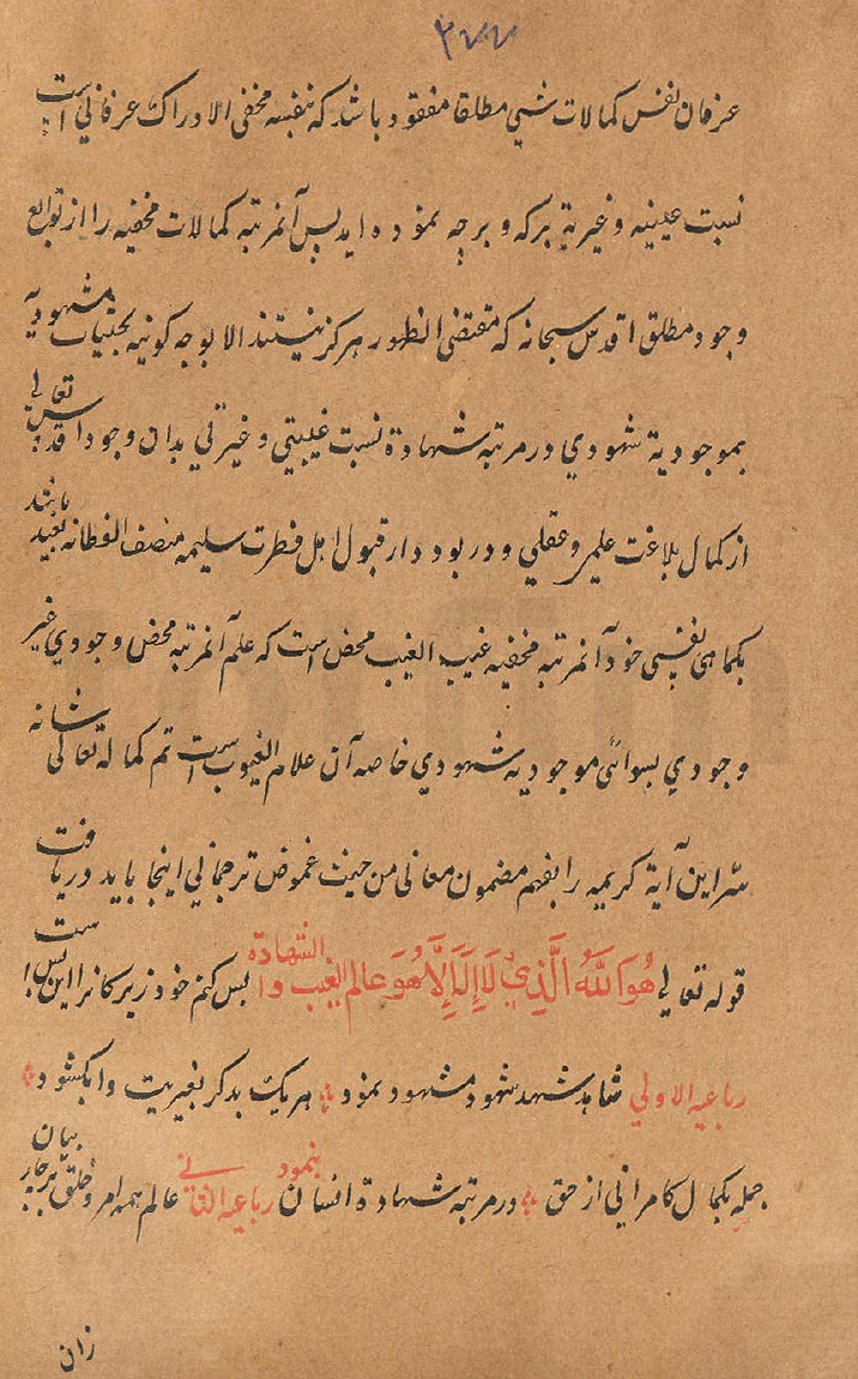 ۳۷۷
عرفان نفس کمالات شیی مطلقا مفقود باشد که بنفسه مخفی الادراک عرفانی است
نسبت عینیه و غیریة برکه و برچه نموده اید پس آنمرتبه کمالات مخفیه را از توابع
وجود مطلق اقدس سبحانه که مقتضی الظهور هرکز نیستند الا بوجه کونیه بجنبات مشهودیه
بموجودیة شهودی در مرتبه شهادة نسبت غیبتی و غیرتی بدان وجود اقدس تعالی
از کمال بلاغت علمی و عقلی و در بود دار قبول اهل فطرت سلیمه منصف الفطانه بعید باشد
بکماهی بنفسی خود آنمرتبه مخفیه غیب الغیب محض است که علم آنمرتبه محض وجودی غیر
وجودی بسوائی موجودیه شهودی خاصه آن علام الغیوب است تم کماله تعالی شانه
سر این آیة کریمه را بفهم مضمون معانی من حیث غموض ترجمانی اینجا باید دریافت
قوله تعالی هُوَ اللَّهُ الَّذِي لَا إِلَهَ إِلَّا هُوَ عالم الغیب والشهادة بس کنم خود زیرکانرا این بس است
رباعیه الاولی شاهد شهد شهود مشهود نمود هریک بدکر بغیریت وا بکشود
جمله بکمال کامرانی از حق در مرتبه شهادة انسان بنمود رباعیه الثانی عالم همه امر و خلق بیان
زان